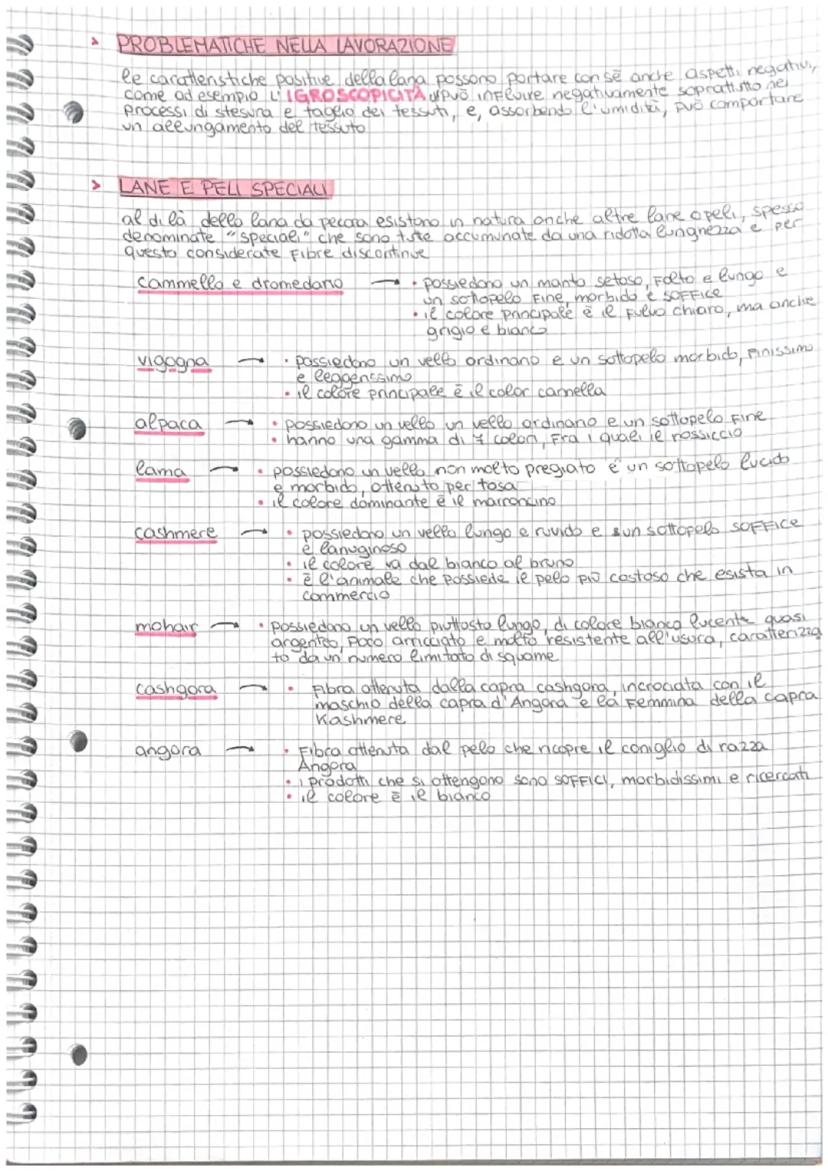 > PROBLEMATICHE NELLA LAVORAZIONE
le caratteristiche positive della lana possono portare con sé anche aspetti negativi,
come ad esempio L'IGROSCOPICITÀ può influire negativamente soprattutto nei
processi di stesura e taglio dei tessuti, e, assorbendo l'umidità, può comportare
un allungamento del tessuto
> LANE E PELI SPECIALI
al di là della lana da pecora esistono in natura anche altre lane o peli, spesso
denominate "speciali" che sono tutte accumunate da una ridotta lunghezza e per
questo considerate fibre discontinue
cammello e dromedario → • possiedono un manto setoso, folto e lungo e
un sottopelo fine, morbido e soffice
• il colore principale è il fulvo chiaro, ma anche
grigio e bianco
vigogna → • possiedono un vello ordinario e un sottopelo morbido, finissimo
e leggerissimo
• il colore principale è il color camella
alpaca → • possiedono un vello un vello ordinario e un sottopelo fine
• hanno una gamma di 7 colori, fra i quali il rossiccio
lama → • possiedono un vello non molto pregiato e un sottopelo lucido
e morbido, ottenuto per tosa
• il colore dominante è il marroncino
cashmere → • possiedono un vello lungo e ruvido e un sottopelo soffice
e lanuginoso
• il colore va dal bianco al bruno
• è l'animale che possiede il pelo più costoso che esista in
commercio
mohair → • possiedono un vello piuttosto lungo, di colore bianco lucente quasi
argenteo, poco arricciato e molto resistente all'usura, caratterizza
to da un numero limitato di squame
cashgora → • Fibra ottenuta dalla capra cashgora, incrociata con il
maschio della capra d'Angora e la femmina della capra
Kashmere
angora → • Fibra ottenuta dal pelo che ricopre il coniglio di razza
Angora
• i prodotti che si ottengono sono soffici, morbidissimi e ricercati
• il colore è il bianco